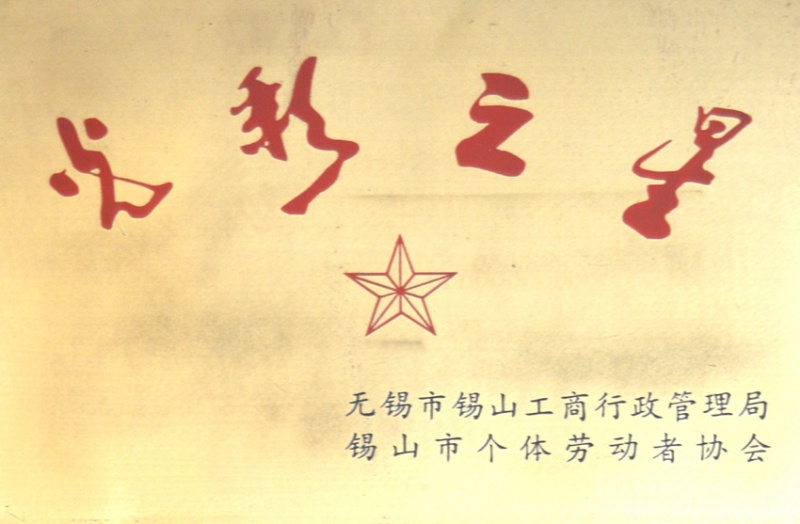 光彩之星
无锡市锡山工商行政管理局
锡山市个体劳动者协会